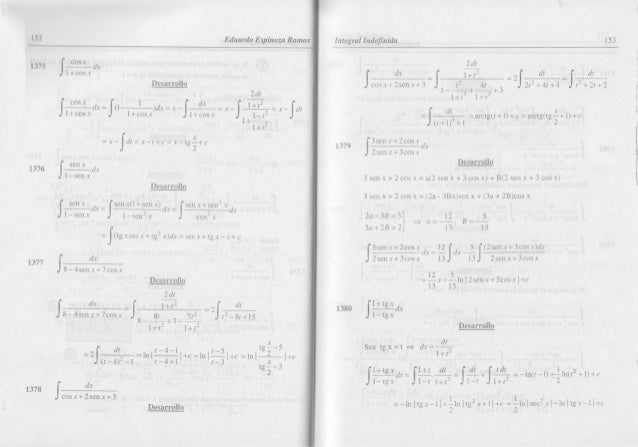 152 Eduardo Espinoza Ramos
1375 ∫ cos x / (1+cos x) dx
Desarrollo
∫ cos x / (1+cos x) dx = ∫(1 - 1/(1+cos x))dx = x - ∫ dx/(1+cos x) = x - ∫ (2dt/(1+t²)) / (1+(1-t²)/(1+t²)) = x - ∫dt
= x - ∫dt = x - t + c = x - tg x/2 + c
1376 ∫ sen x / (1-sen x) dx
Desarrollo
∫ sen x / (1-sen x) dx = ∫ sen x(1+sen x) / (1-sen² x) dx = ∫ (sen x+sen² x) / cos² x dx
= ∫(tg x sec x + tg² x)dx = sec x + tg x - x + c
1377 ∫ dx / (8-4sen x+7cos x)
Desarrollo
∫ dx / (8-4sen x+7cos x) = ∫ (2dt/(1+t²)) / (8- 8t/(1+t²) +7- 7t²/(1+t²)) = 2∫ dt / (t²-8t+15)
= 2∫ dt/((t-4)²-1) = ln|(t-4-1)/(t-4+1)|+c = ln|(t-5)/(t-3)|+c = ln|(tg x/2 -5)/(tg x/2 -3)|+c
1378 ∫ dx / (cos x+2sen x+3)
Desarrollo
Integral Indefinida 153
∫ dx/(cos x+2sen x+3) = ∫ (2dt/(1+t²)) / (1- t²/(1+t²) + 4t/(1+t²) +3) = 2∫ dt/(2t²+4t+4) = ∫ dt/(t²+2t+2)
= ∫ dt/((t+1)²+1) = arctg(t+1)+c = arctg(tg x/2 +1)+c
1379 ∫ (3sen x+2cos x)/(2sen x+3cos x) dx
Desarrollo
3 sen x + 2 cos x = a(2 sen x + 3 cos x) + B(2 sen x + 3 cos x)
3 sen x + 2 cos x = (2a - 3B)sen x + (3a + 2B)cos x
2a-3B=3
3a+2B=2 } ⇒ a = 12/13, B = - 5/13
∫ (3sen x+2cos x)/(2sen x+3cos x) dx = 12/13 ∫dx - 5/13 ∫ (2sen x+3cos x)dx/(2sen x+3cos x)
= 12/13 x - 5/13 ln|2sen x+3cos x|+c
1380 ∫ (1+tg x)/(1-tg x) dx
Desarrollo
Sea tg x = t ⇒ dx = dt/(1+t²)
∫ (1+tg x)/(1-tg x) dx = ∫ (1+t)/(1-t) dt/(1+t²) = ∫ dt/(1-t) + ∫ t dt/(1+t²) = -ln(t-1)+ 1/2 ln(t²+1)+c
= -ln|tg x-1|+ 1/2 ln|tg² x+1|+c = 1/2 ln|sec² x|-ln|tg x-1|+c